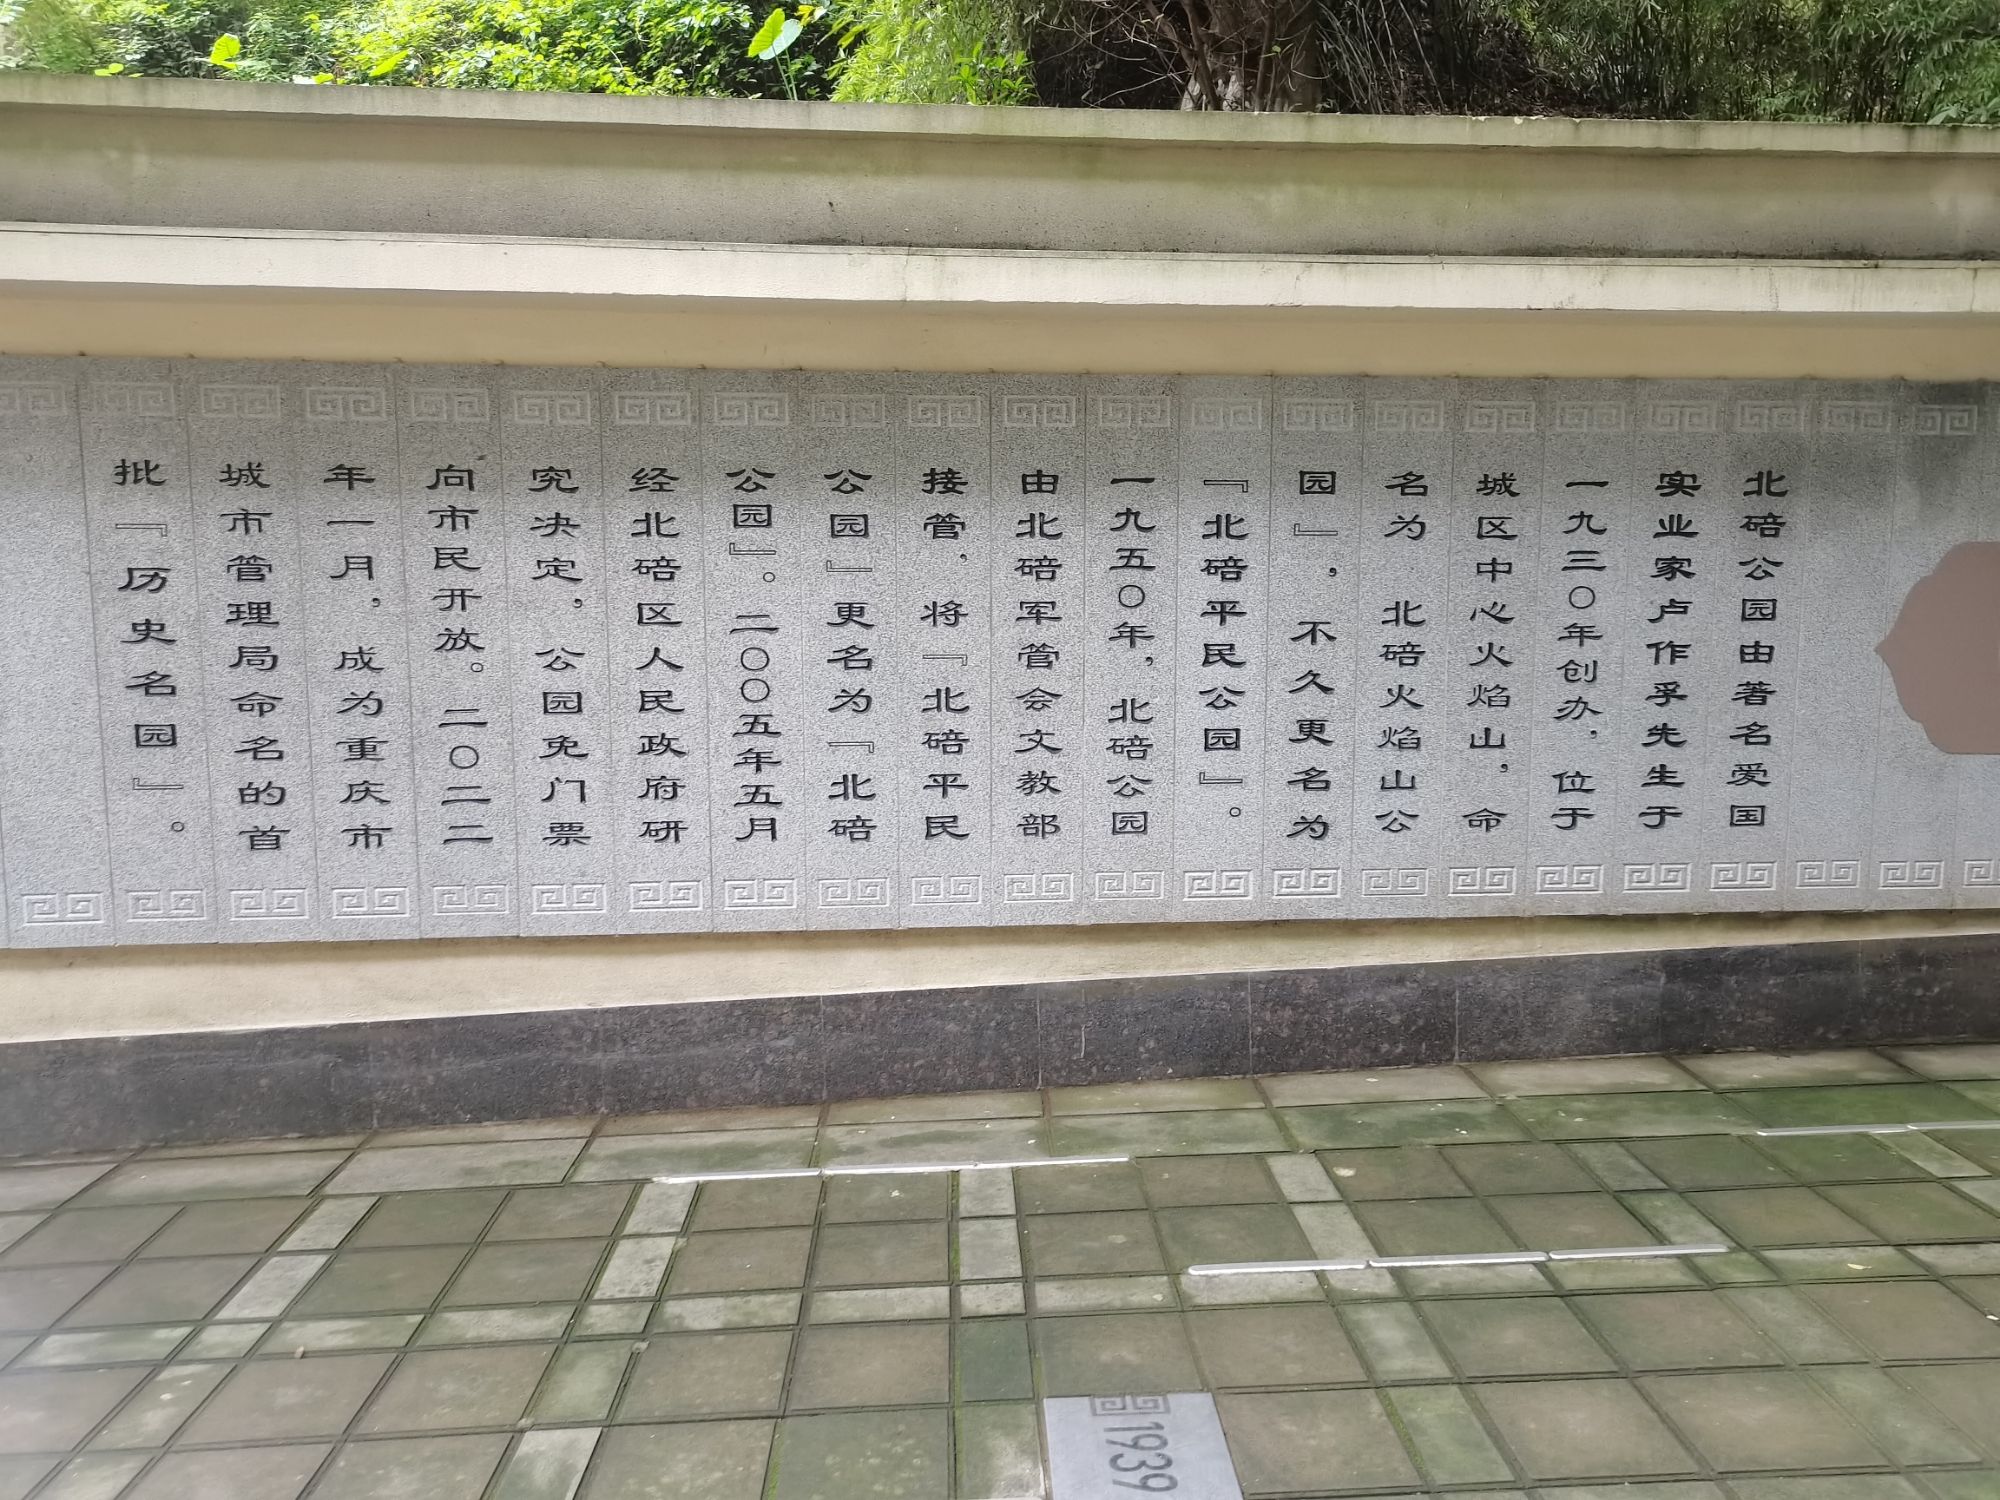 北碚公园由著名爱国
实业家卢作孚先生于
一九三〇年创办，位于
城区中心火焰山，命
名为 北碚火焰山公
园』，不久更名为
『北碚平民公园』。
一九五〇年，北碚公园
由北碚军管会文教部
接管，将『北碚平民
公园』更名为『北碚
公园』。二〇〇五年五月
经北碚区人民政府研
究决定，公园免门票
向市民开放。二〇二二
年一月，成为重庆市
城市管理局命名的首
批『历史名园』。
1939